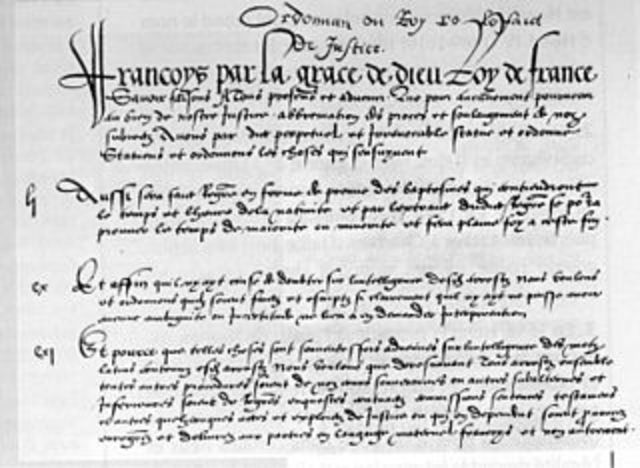 Ordonnan du Roy po le faict
De Justice.
Francoys par la grace de dieu Roy de france
Savoir faisons A Tous presens et advenir Que pour aucunement pourveoir
au bien de nostre Justice abbreviation des proces et soulaigement de noz
subiectz Avons par edict perpetuel et Irrevocable statue et ordonne
Statuons et ordonnons les choses qui sensuyvent
li Aussi sera faict Regre en forme de preuve des baptesmes qui contiendront
le temps et lheure dela nativite et par lextraict dudict Regre se porra
prouver le temps de majorite ou minorite et fera plaine foy a ceste fin
cx Et affin quil ny ayt cause de doubter sur lintelligence desdictz arrestz Nous voulons
et ordonnons quilz soient faictz et escriptz si clairement quil ny ayt ne puisse avoir
aucune ambiguite ou Incertitude ne lieu a en demander Interpretation
cxi Et pource que telles choses sont souventesfois advenues sur lintelligence des motz
latins contenuz esdictz arrestz Nous voulons que doresnavant Tous arrestz ensemble
toutes autres procedures soient de noz cours souveraines ou autres subalternes et
Inferieures soient de Regres enquestes contractz commissions sentences testamens
et autres quelzconques actes et exploictz de Justice ou qui en dependent soient prononcez
enregistrez et delivrez aux parties en langage maternel francoys et non autrement.